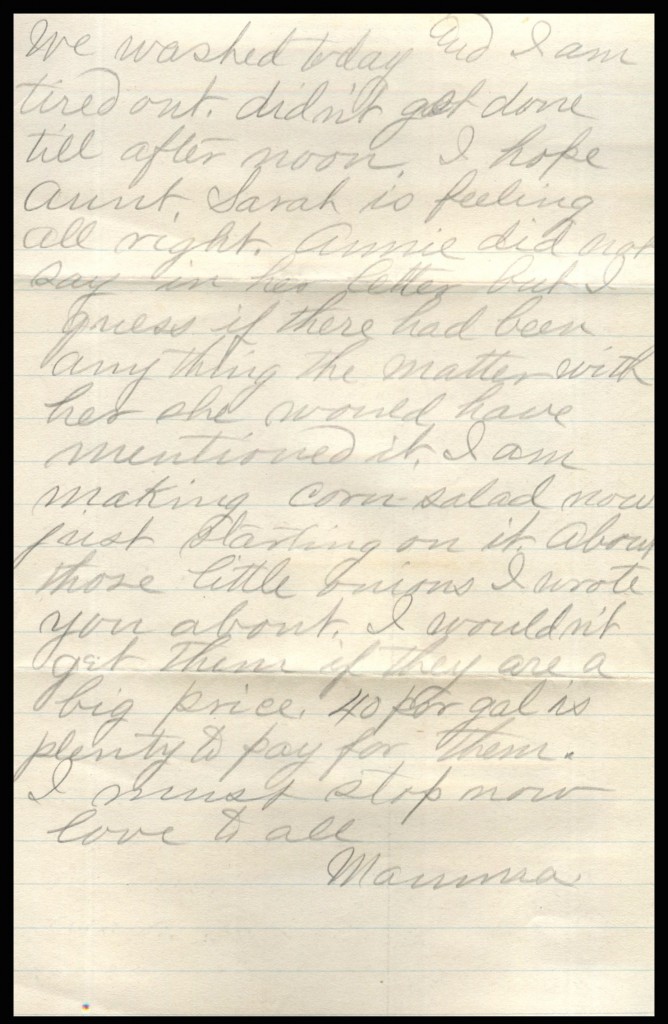 We washed today and I am
tired out. didn't get done
till after noon. I hope
Aunt Sarah is feeling
all right. Annie did not
say in her letter but I
guess if there had been
any thing the matter with
her she would have
mentioned it. I am
making corn salad now
just starting on it. About
those little onions I wrote
you about. I wouldn't
get them if they are a
big price. 40 per gal is
plenty to pay for them.
I must stop now
love to all
Mamma